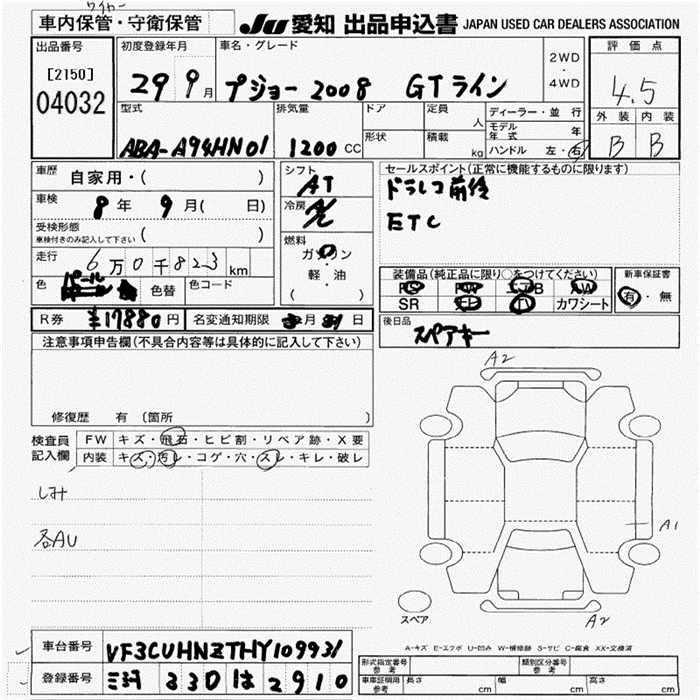 ワイパー
車内保管・守衛保管
JU 愛知 出品申込書 JAPAN USED CAR DEALERS ASSOCIATION
出品番号
[2150]
04032
初度登録年月
29 9月
車名・グレード
プジョー2008 GTライン
2WD
・
4WD
評価点
4.5
外装 内装
B B
型式
ABA-A94HN01
排気量
1200 CC
ドア
形状
定員
人
積載
kg
ディーラー・並行
モデル年式 年
ハンドル 左・右
車歴
自家用・( )
車検
8年 9月( 日)
受検形態
車検付きのみ記入して下さい ( )
走行
6万0千823km
色
パール
色替
色コード
シフト
AT
冷房
A/C
燃料
ガソリン
・
軽・油
( )
セールスポイント(正常に機能するものに限ります)
ドラレコ前後
ETC
装備品(純正品に限り○をつけてください)
PS PW エアB AW
SR ナビ TV カワシート
新車保証書
有・無
後日品
スペアキー
R券 ¥17880円
名変通知期限 月 日
注意事項申告欄(不具合内容等は具体的に記入して下さい)
修復歴 有 〔箇所 〕
検査員記入欄
FW キズ・飛石・ヒビ割・リペア跡・X要
内装 キズ・汚レ・コゲ・穴・スレ・キレ・破レ
シミ
各AU
A2
A1
A2
スペア
A-キズ E-エクボ U-凹み W-補修跡 S-サビ C-腐食 XX-交換済
車台番号 VF3CUHNZTHY109931
登録番号 330は2910
形式指定番号
参考
類別区分番号
参考
車車証明用
参考
長さ cm 幅 cm 高さ cm